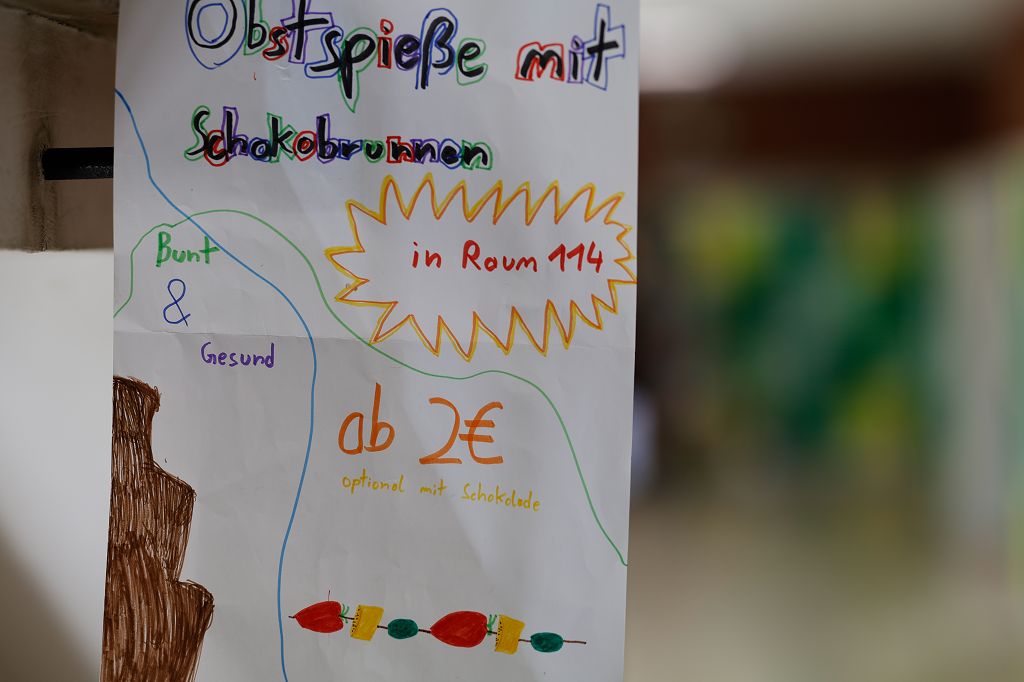 Obstspieße mit
Schokobrunnen
in Raum 114
Bunt
&
Gesund
ab 2€
optional mit Schokolade